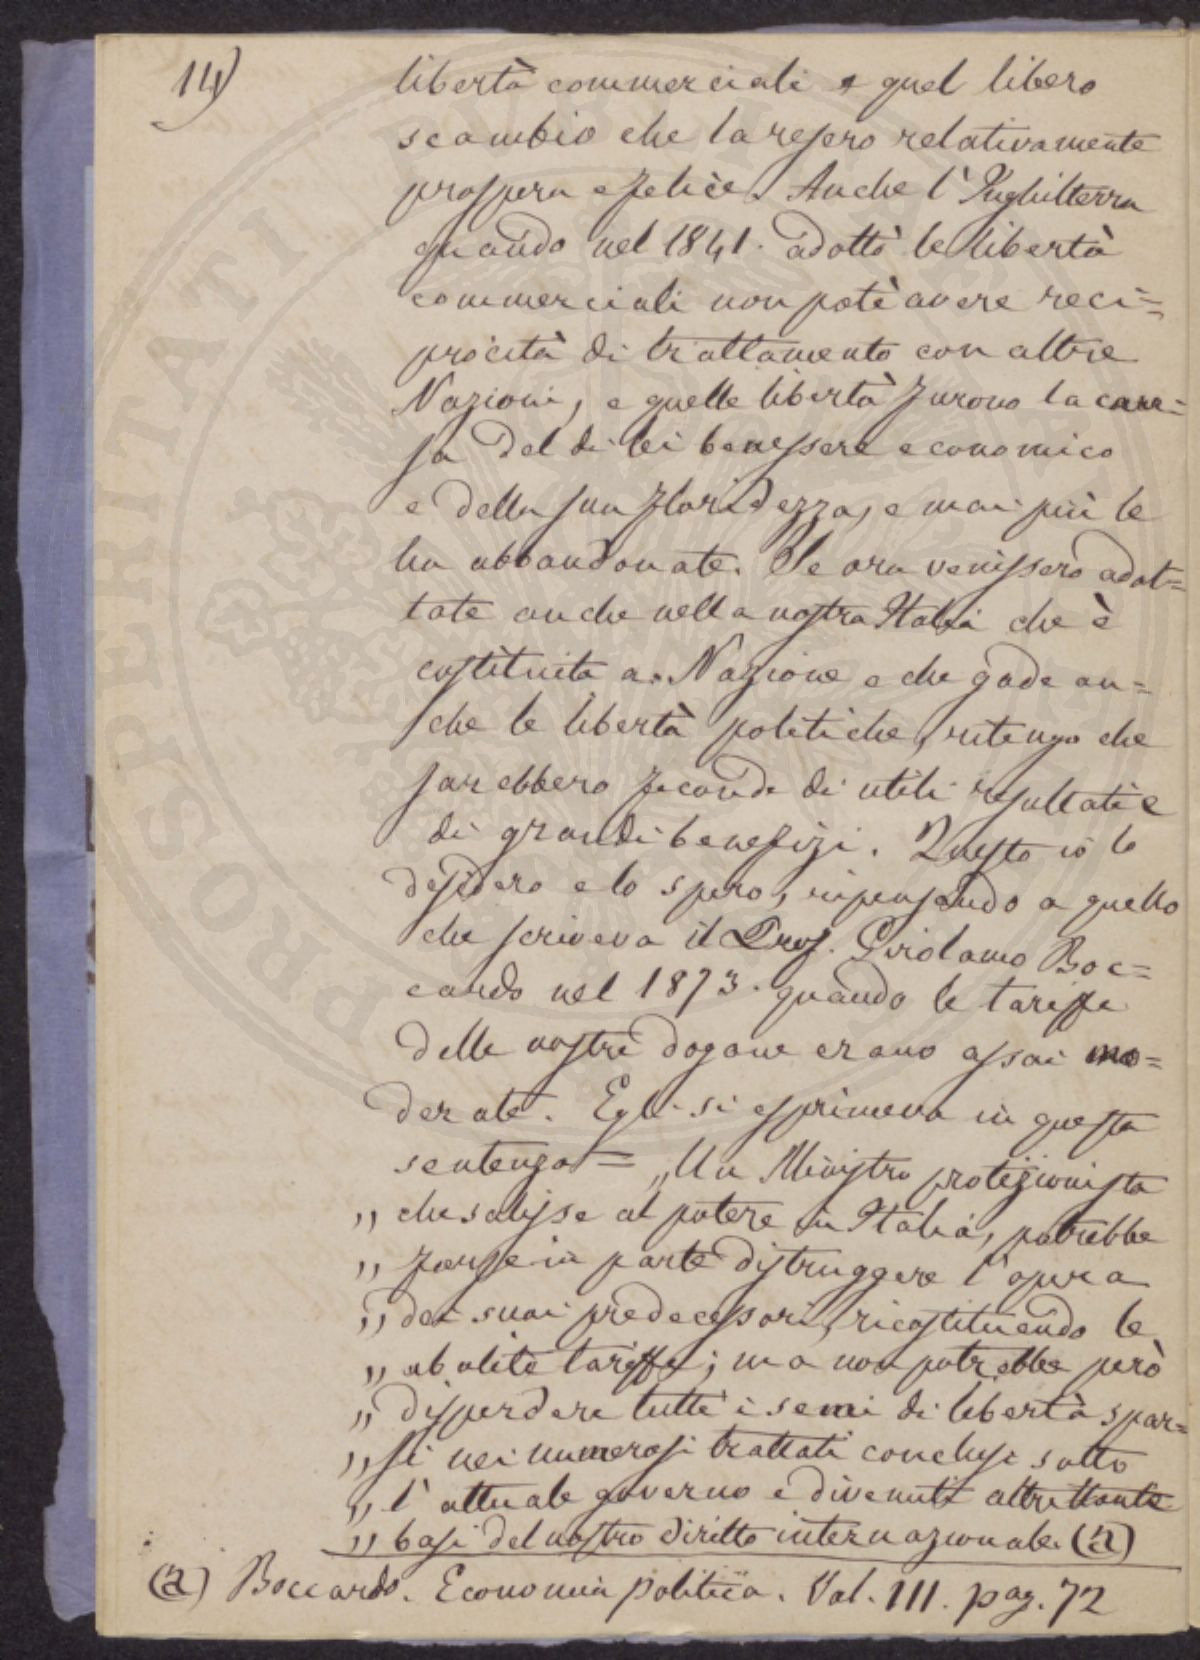 14)
libertà commerciali e quel libero
scambio che la resero relativamente
prospera e felice. Anche l'Inghilterra
quando nel 1841. adottò le libertà
commerciali non potè avere reci=
procità di trattamento con altre
Nazioni, e quelle libertà furono la cau=
sa del di lei benessere economico
e della sua floridezza, e mai più le
ha abbandonate. Se ora venissero adot=
tate anche nella nostra Italia che è
costituita a Nazione e che gode an=
che le libertà politiche, ritengo che
sarebbero feconde di utili resultati e
di grandi benefizi. Questo io lo
desidero e lo spero, ripensando a quello
che scriveva il Prof. Girolamo Boc=
cardo nel 1873. quando le tariffe
delle nostre dogane erano assai mo=
derate. Egli si esprimeva in questa
sentenza = „Un Ministro protezionista
„ che salisse al potere in Italia, potrebbe
„ forse in parte distruggere l'opera
„ dei suoi predecessori, ricostituendo le
„ abolite tariffe; ma non potrebbe però
„ disperdere tutti i semi di libertà spar=
„ si nei numerosi trattati conclusi sotto
„ l'attuale governo e divenuti altrettante
„ basi del nostro diritto internazionale. (a)
(a) Boccardo. Economia politica. Vol. III. pag. 72
PROSPERITATI PUBLICAE